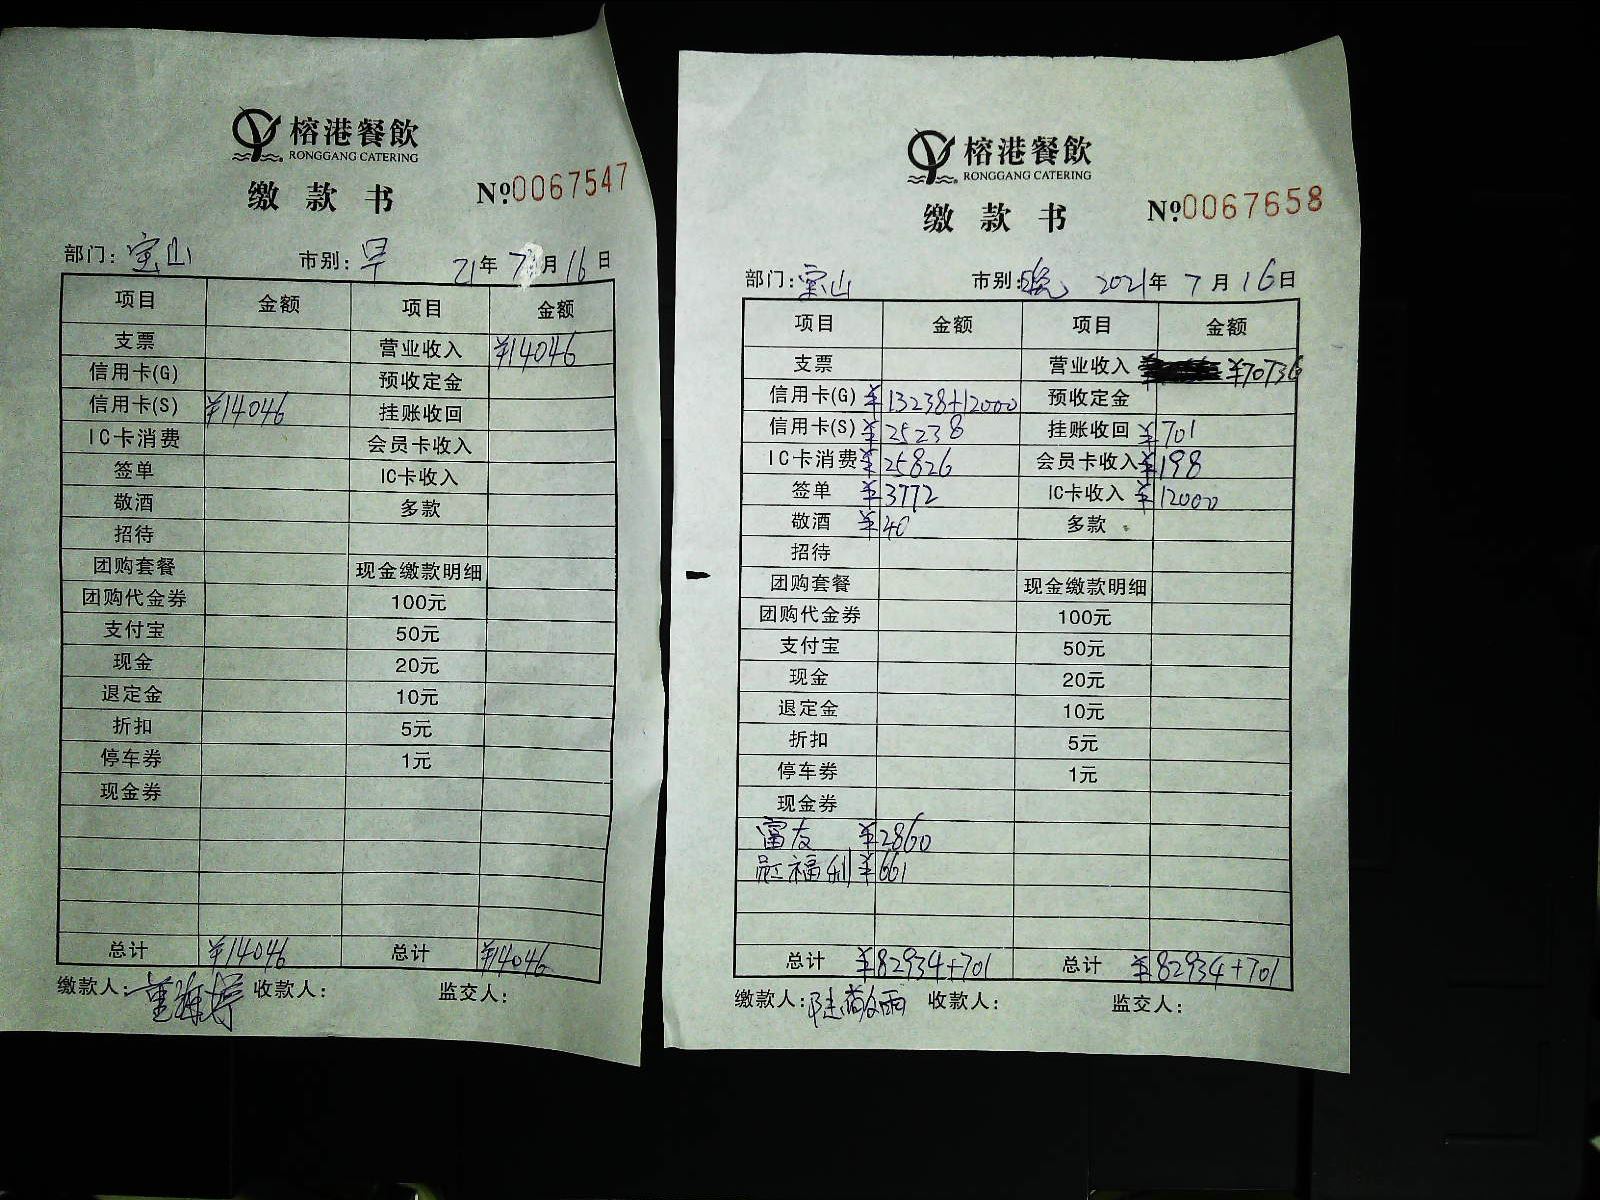 榕港餐飲
RONGGANG CATERING
缴款书
№0067547
部门：宝山 市别：早 21年7月16日
项目 金额 项目 金额
支票 营业收入 ¥14046
信用卡(G) 预收定金
信用卡(S) ¥14046 挂账收回
IC卡消费 会员卡收入
签单 IC卡收入
敬酒 多款
招待
团购套餐 现金缴款明细
团购代金券 100元
支付宝 50元
现金 20元
退定金 10元
折扣 5元
停车券 1元
现金券
总计 ¥14046 总计 ¥14046
缴款人： 收款人： 监交人：
榕港餐飲
RONGGANG CATERING
缴款书
№0067658
部门：宝山 市别：晚 2021年7月16日
项目 金额 项目 金额
支票 营业收入 ¥70736
信用卡(G) ¥13238+12000 预收定金
信用卡(S) ¥25238 挂账收回 ¥701
IC卡消费 ¥25826 会员卡收入 ¥198
签单 ¥3772 IC卡收入 ¥12000
敬酒 ¥40 多款
招待
团购套餐 现金缴款明细
团购代金券 100元
支付宝 50元
现金 20元
退定金 10元
折扣 5元
停车券 1元
现金券
富友 ¥2860
福利 ¥661
总计 ¥82934+701 总计 ¥82934+701
缴款人： 收款人： 监交人：